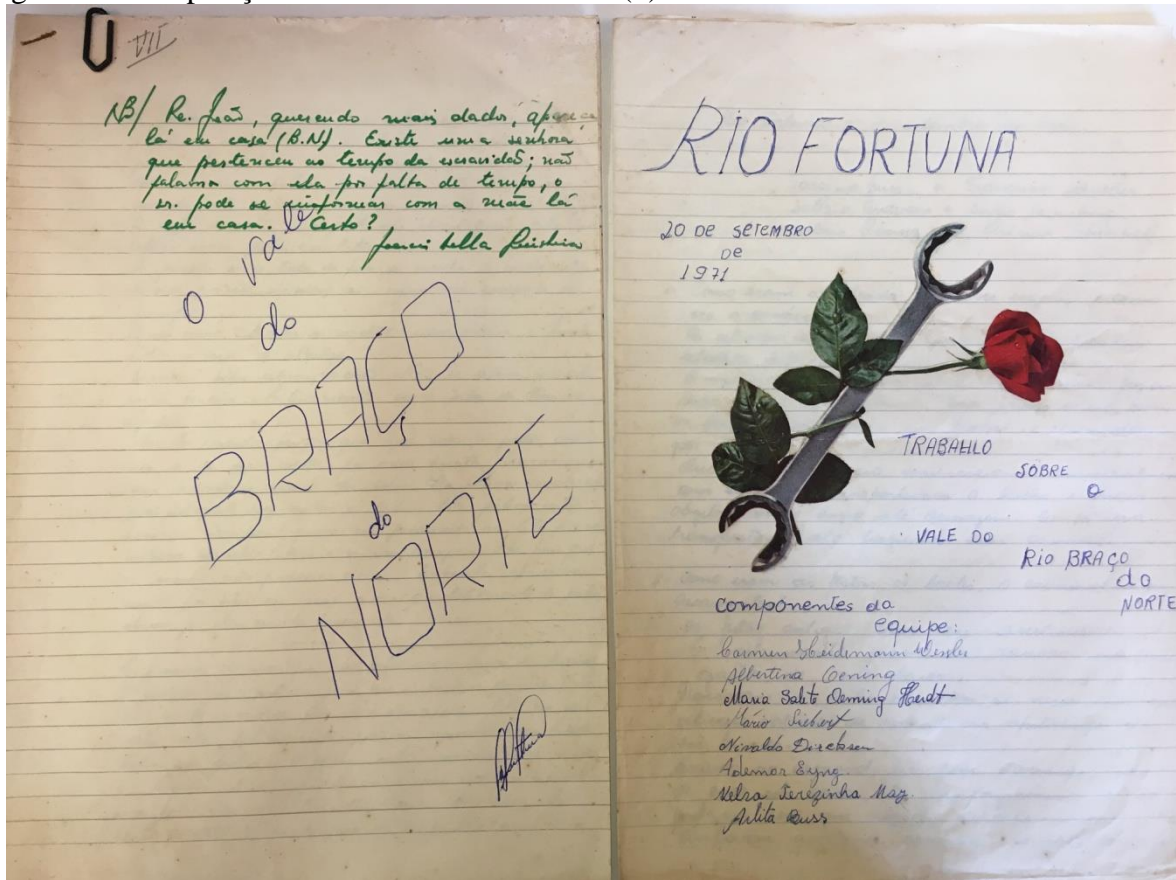 VII
NB/ Pe. João, querendo mais dados, apareça
lá em casa (B.N). Existe uma senhora
que pertenceu ao tempo da escravidão; não
falamos com ela por falta de tempo, o
sr. pode se informar com a mãe lá
em casa. Certo?
O Vale
do
BRAÇO
do
NORTE
RIO FORTUNA
20 DE SETEMBRO
DE
1971
TRABAHLO
SOBRE
O
VALE DO
RIO BRAÇO
do
NORTE
Componentes da
equipe:
Carmen Heidemann Wessler
Albertina Oening
Maria Salete Oeming Herdt
Mário Siebert
Nivaldo Dircksen
Ademar Eyng.
Terezinha
Arlita Buss